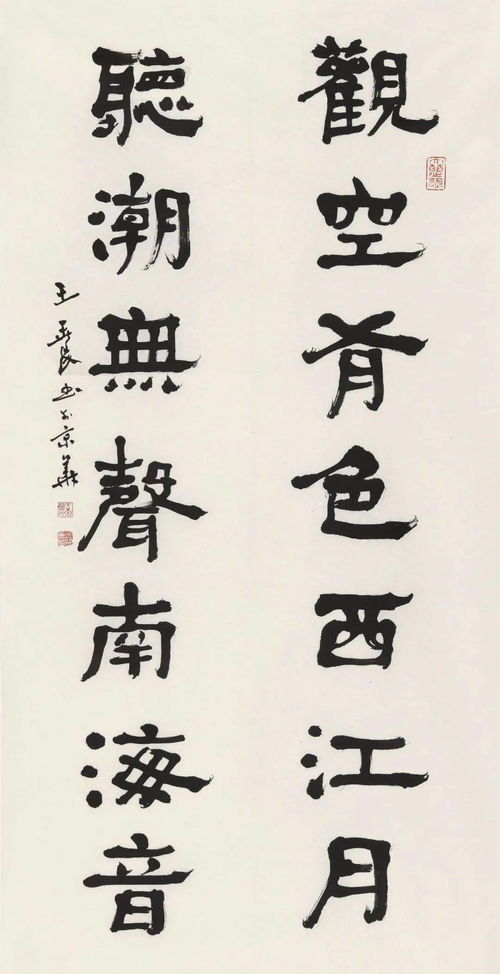 觀空有色西江月
聽潮無聲南海音
王
書於京華